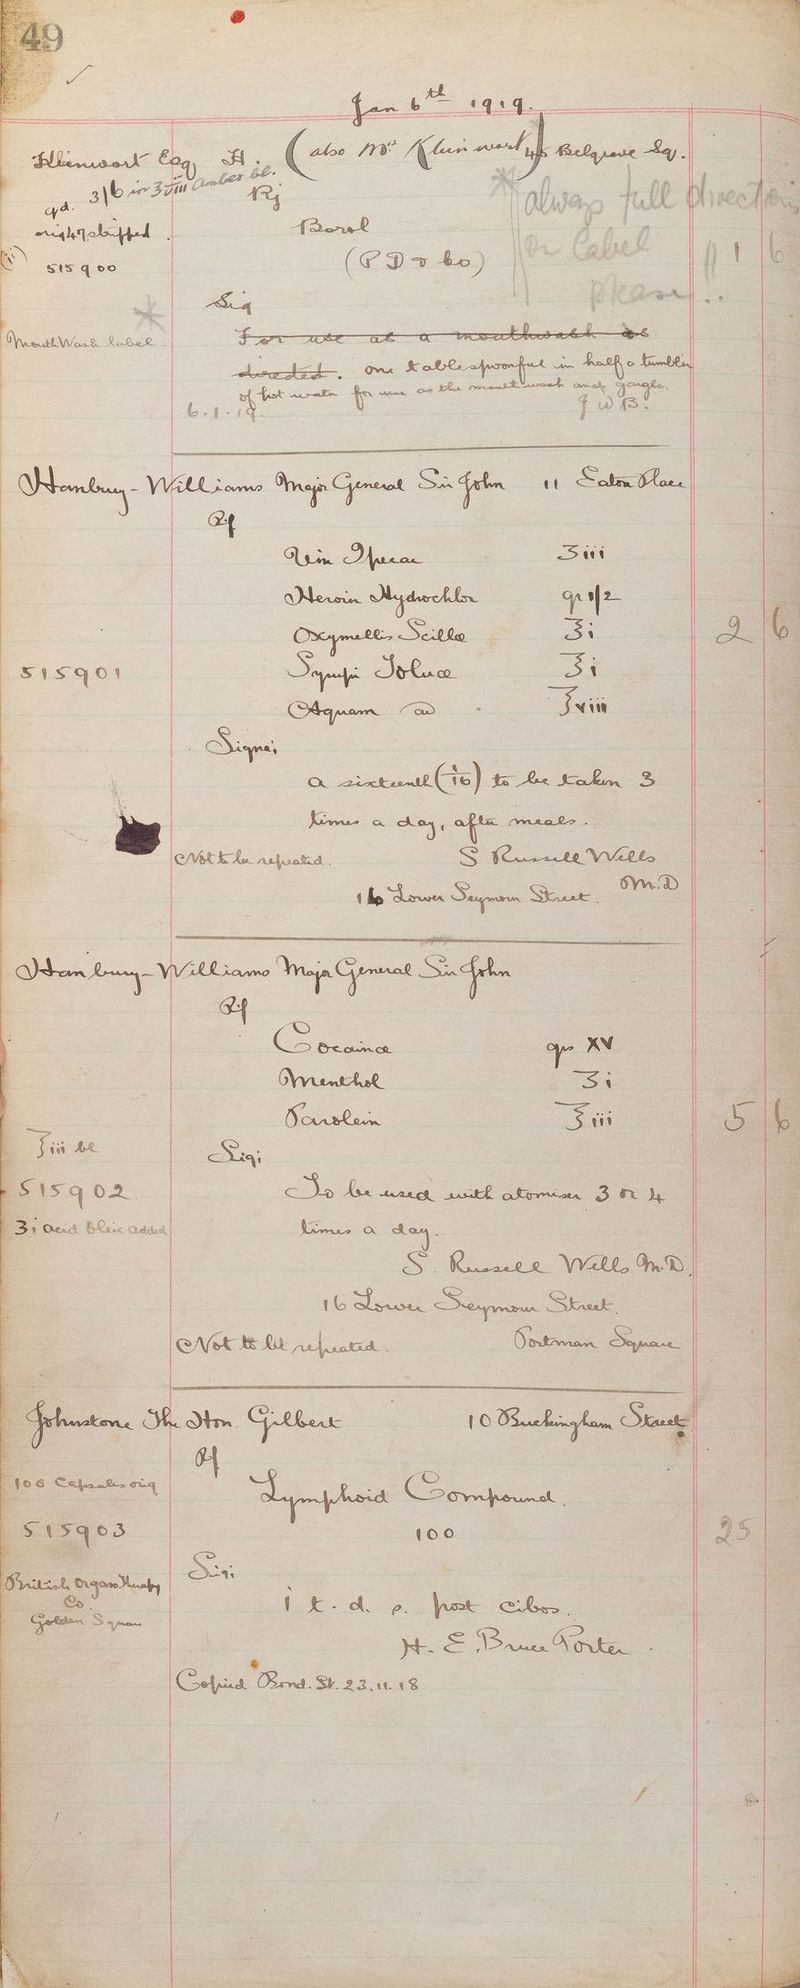 49
Jan 6th 1919.
Kleinwort Esq H. (also Mrs Kleinwort) 45 Belgrave Sq.
qd. 3/6 in ℥viii amber bl.
Rx
* always full directions
orig 47, stripped.
Borol
on label
1 6
515900
(P D & Co)
please!!
Sig
*
Mouth Wash label.
For use as a mouthwash as
directed. one tablespoonful in half a tumbler
of hot water for use as the mouth wash and gargle.
6.1.19.
J W B.
Hanbury-Williams Major General Sir John 11 Eaton Place
Rx
Vin Ipecac ʒiii
Heroin Hydrochlor gr 1/2
Oxymellis Scillae ℥i
2 6
515901
Syrupi Tolux ℥i
Aquam ad ℥viii
Signa;
a sixteenth (1/16) to be taken 3
times a day, after meals.
Not to be repeated.
S Russell Wells
M.D
16 Lower Seymour Street.
Hanbury-Williams Major General Sir John
Rx
Cocainae grs XV
Menthol ʒi
Parolein ℥iii
5 6
℥iii bl
Sig;
515902
To be used with atomiser 3 or 4
ʒi acid Oleic added
times a day.
S. Russell Wells M.D.
16 Lower Seymour Street.
Not to be repeated.
Portman Square
Johnstone The Hon. Gilbert 10 Buckingham Street
Rx
100 Capsules orig
Lymphoid Compound.
515903
100
25
British Organotherapy
Co
Golden Square
Sig;
i t. d. s. post cibos.
H. E. Bruce Porter.
Copied Bond. St. 23.11.18